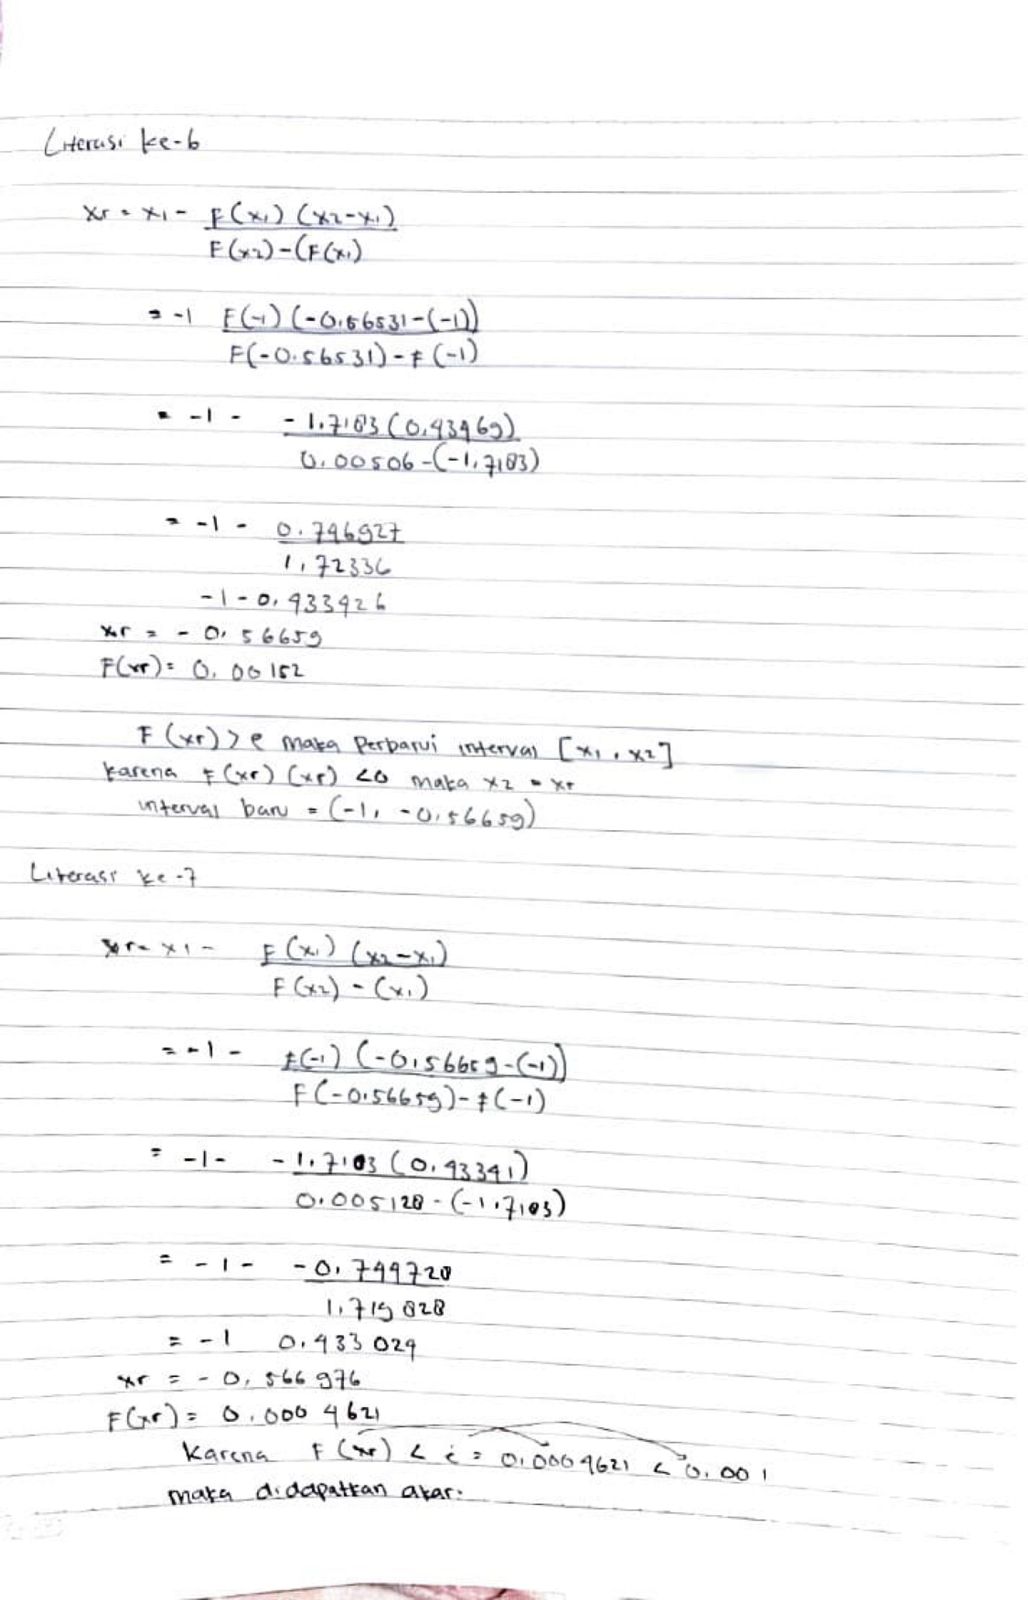 Literasi ke-6
xr = x1 - F(x1) (x2-x1)
F(x2)-(F(x1)
= -1 F(-1) (-0.56531-(-1))
F(-0.56531)-f(-1)
= -1 - -1.7183 (0.43469)
0.00506-(-1,7183)
= -1 - 0.746927
1,72336
-1 - 0,433426
xr = -0,56659
F(xr) = 0.00152
F(xr) > e maka Perbarui interval [x1, x2]
karena f(xr) (xr) <0 maka x2 = xr
interval baru = (-1, -0,56659)
Literasi ke-7
xr = x1 - F(x1) (x2-x1)
F(x2) - (x1)
= -1 - f(-1) (-0,56659-(-1))
F(-0.56659)-f(-1)
= -1 - -1.7183 (0,43341)
0.005128-(-1.7183)
= -1 - -0,744728
1,719828
= -1 0.433024
xr = -0,566976
F(xr) = 0.0004621
Karena F(xr) < i = 0,0004621 < 0,001
maka didapatkan akar.